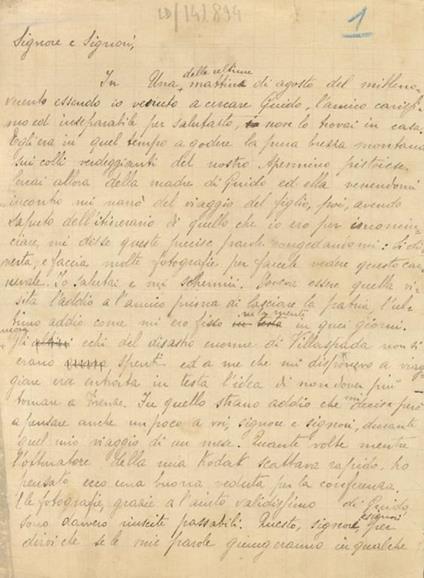 LD/141.894
1
Signore e Signori,
In Una delle ultime mattine di agosto del mille no-
vecento essendo io venuto a cercare Guido, l'amico caris-
mo ed inseparabile per salutarlo, non lo trovai in casa.
Egli era in quel tempo a godere la pura brezza montana
sui colli verdeggianti del nostro Apennino pistoiese.
Cercai allora della madre di Guido ed ella venendomi
incontro mi narrò del viaggio del figlio, poi, avendo
saputo dell'itinerario di quello che io ero per incomin-
ciare, mi disse queste precise parole congedandomi: Si di-
verta, e faccia molte fotografie per farcele vedere questo car-
nevale. Io salutai e mi schermii. Doveva essere quella vi-
sita l'addio a l'amico prima di lasciare la patria l'ul-
timo addio come mi ero fisso in testa in mente in quei giorni.
Gli echi del disastro enorme di Villaspada non si
erano spenti ed a me che mi disponevo a viag-
giare era entrata in testa l'idea di non dover più
tornare a Firenze. In quello strano addio che mi decise però
a pensare anche un poco a voi, signore e signori, durante
quel mio viaggio di un mese. Quante volte mentre
l'otturatore della mia Kodak scattava rapido, ho
pensato ecco una buona veduta per la conferenza.
E le fotografie, grazie a l'aiuto validissimo di Guido
sono davvero riuscite passabili. Questo, signore e signori, per
dirvi che se le mie parole giungeranno in qualche